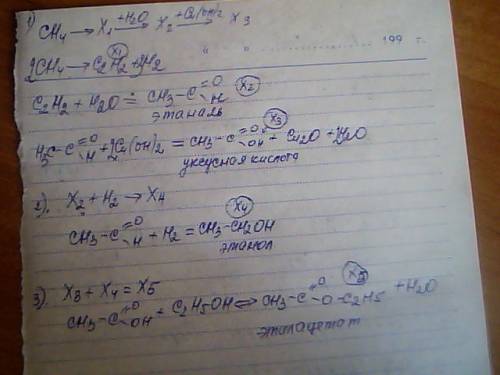 1) CH4 → X1 +H2O → X2 +Cu(OH)2 → X3
" " " 199 г.
2CH4 → C2H2 + 3H2 (X1)
C2H2 + H2O = CH3-C=O H (X2)
этаналь
H3C-C=O H + 2Cu(OH)2 = CH3-C=O OH + Cu2O + 2H2O (X3)
уксусная кислота
2). X2 + H2 → X4
CH3-C=O H + H2 = CH3-CH2OH (X4)
этанол
3) X3 + X4 = X5
CH3-C=O OH + C2H5OH ⇔ CH3-C=O O-C2H5 + H2O (X5)
этилацетат